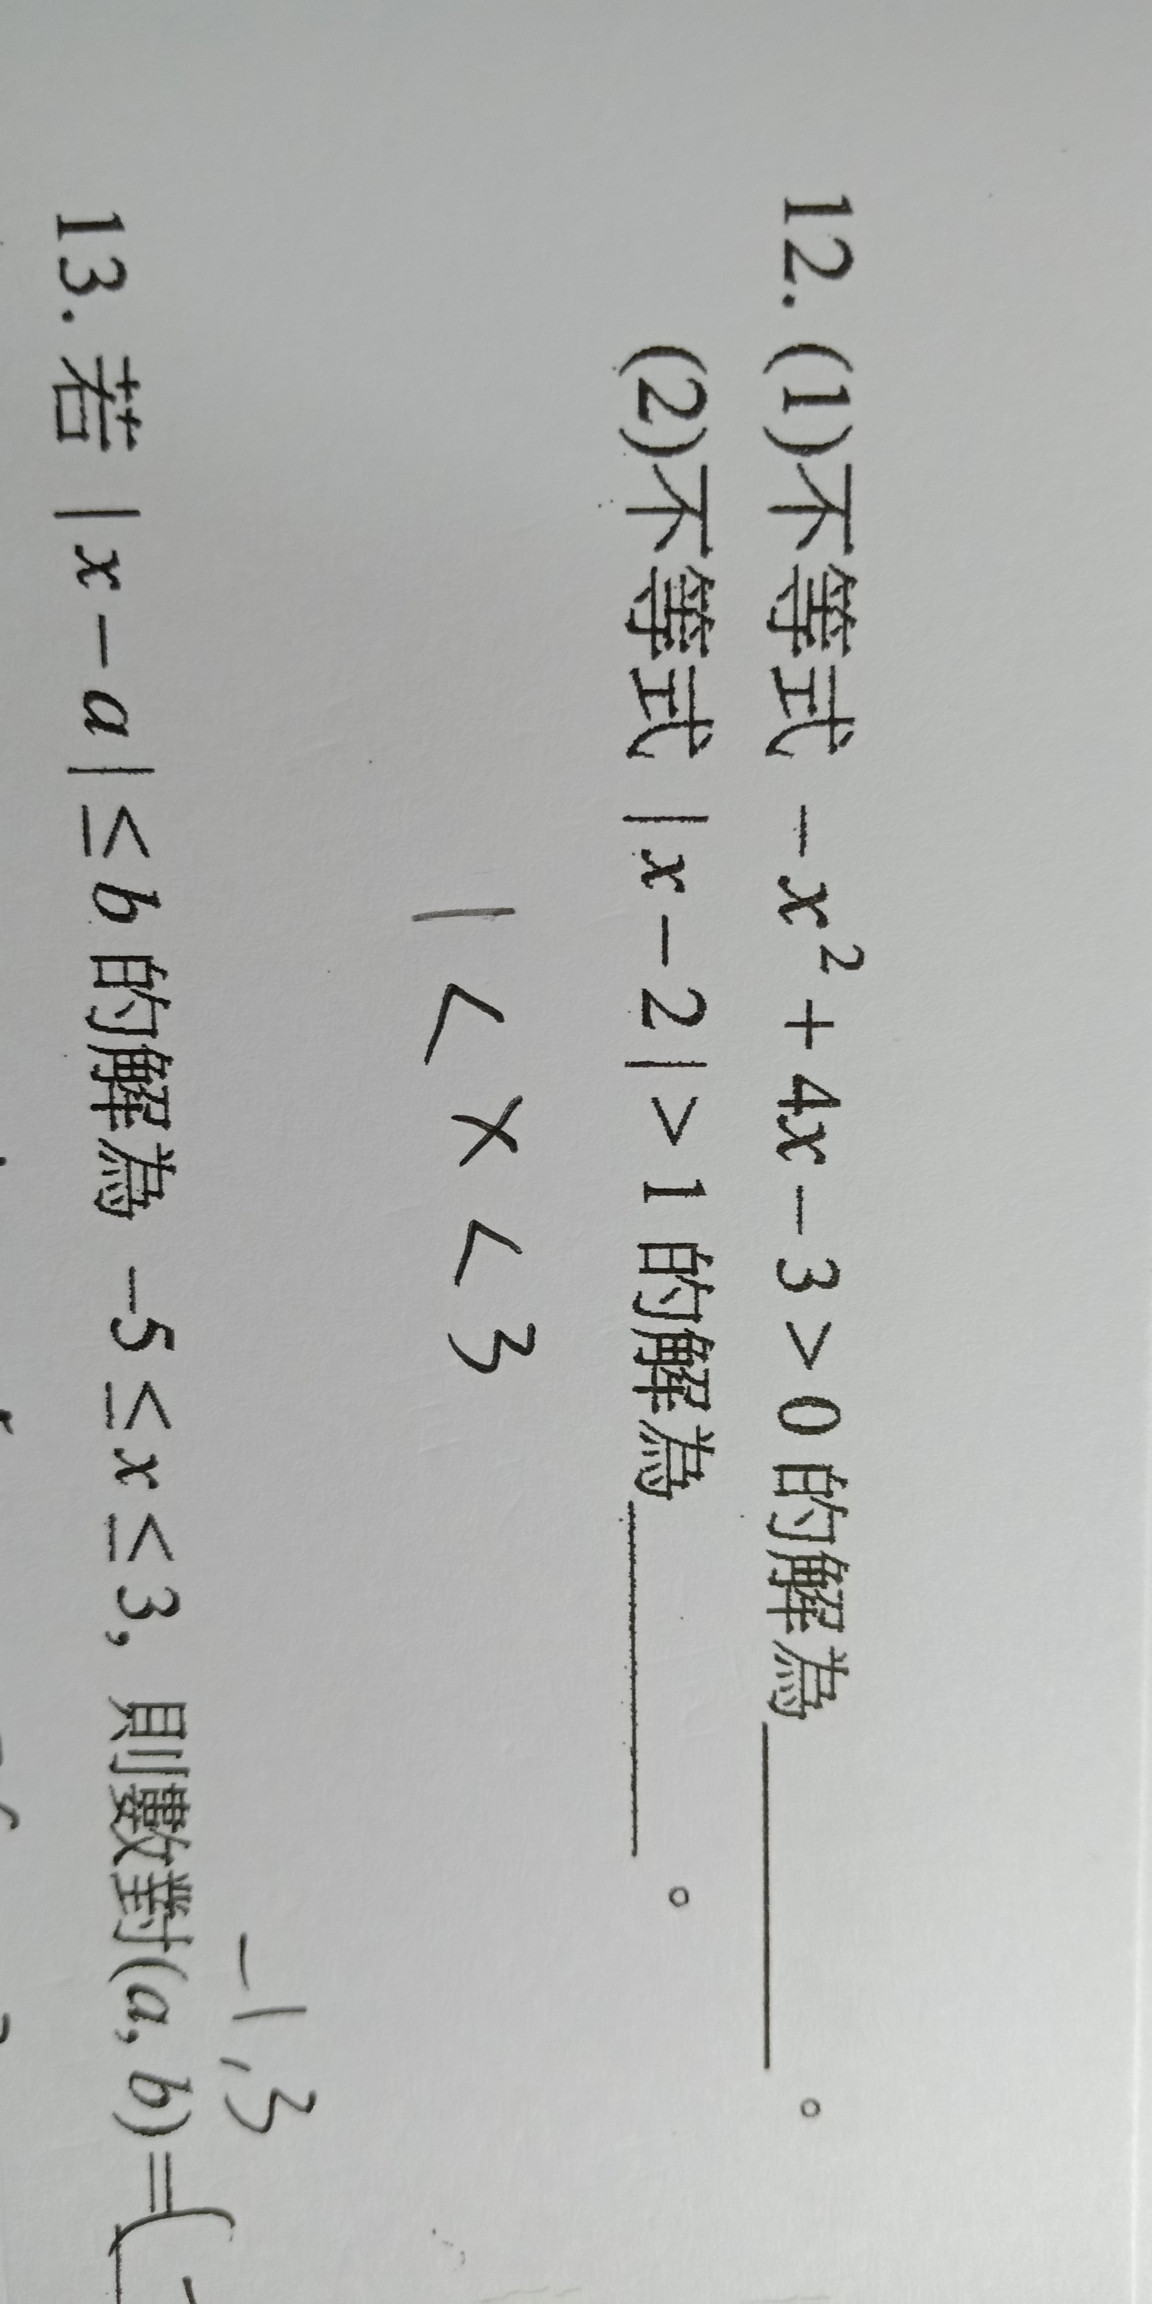 12. (1)不等式 -x²+4x-3>0 的解為＿＿＿＿。
(2)不等式 |x-2|>1 的解為＿＿＿＿。
1<x<3
-1,3
13. 若 |x-a|≤b 的解為 -5≤x≤3, 則數對(a, b)=(